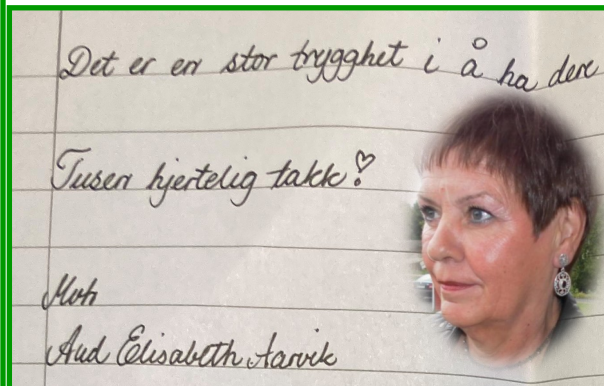 Det er en stor trygghet i å ha dere
Tusen hjertelig takk!
Mvh
Aud Elisabeth Aarvik